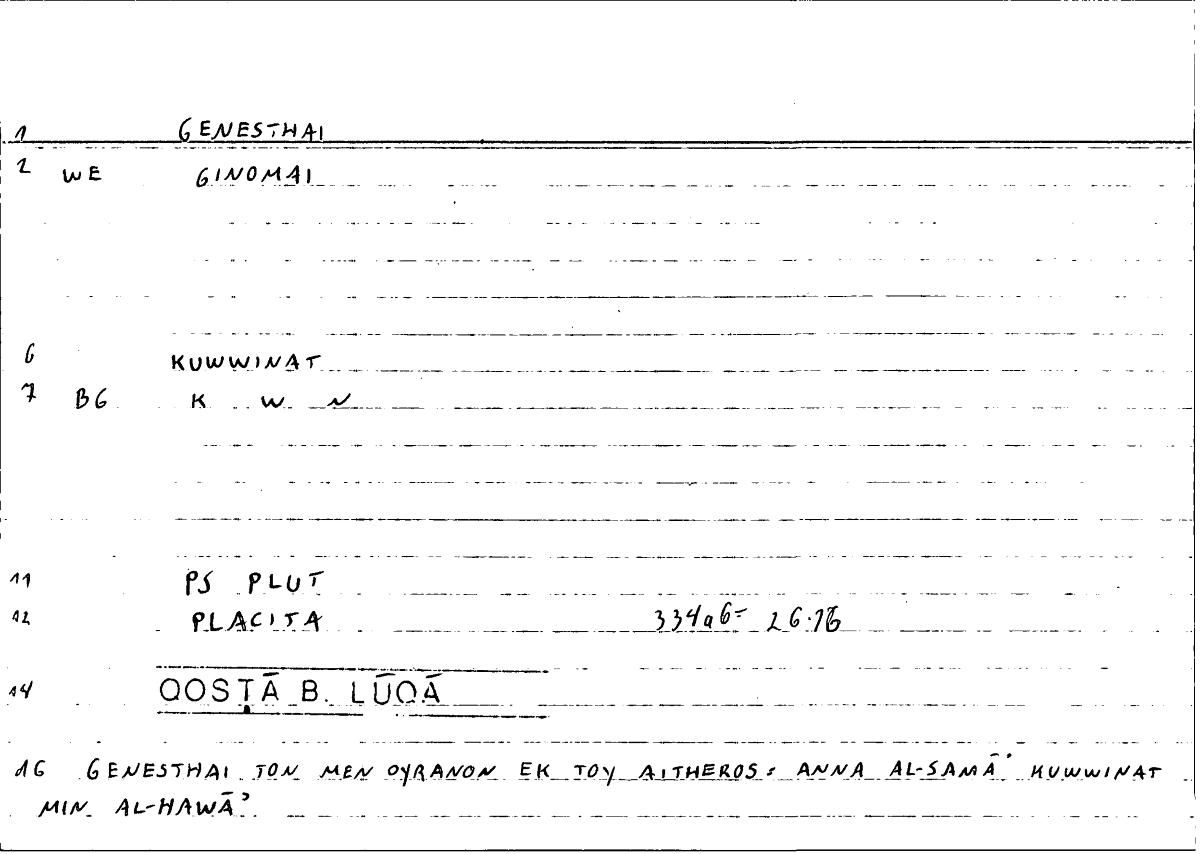 1 GENESTHAI
2 WE GINOMAI
6 KUWWINAT
7 BG K W N
11 PS PLUT
12 PLACITA 334a6= 26.16
14 QOSṬĀ B. LŪQĀ
16 GENESTHAI TON MEN OYRANON EK TOY AITHEROS: ANNA AL-SAMĀʾ KUWWINAT
MIN AL-HAWĀʾ